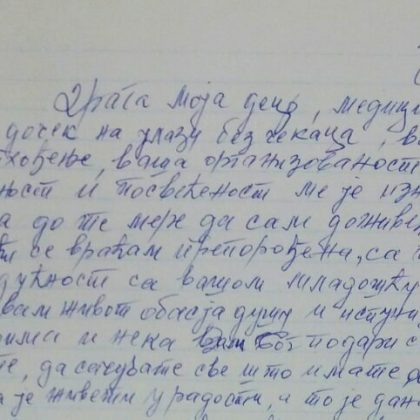 Драга моја децо, медици
дочек на улазу без чекања, в
хођење, ваша организованост
ност и посвећеност ме је изн
а до те мере да сам доживе
се враћам препорођена, са
дућност са вашом младошћу
вам живот обасја душу и испуни
и нека Вам Бог подари с
те, да сачувате све што имате
а је живети у радости, и то је дан